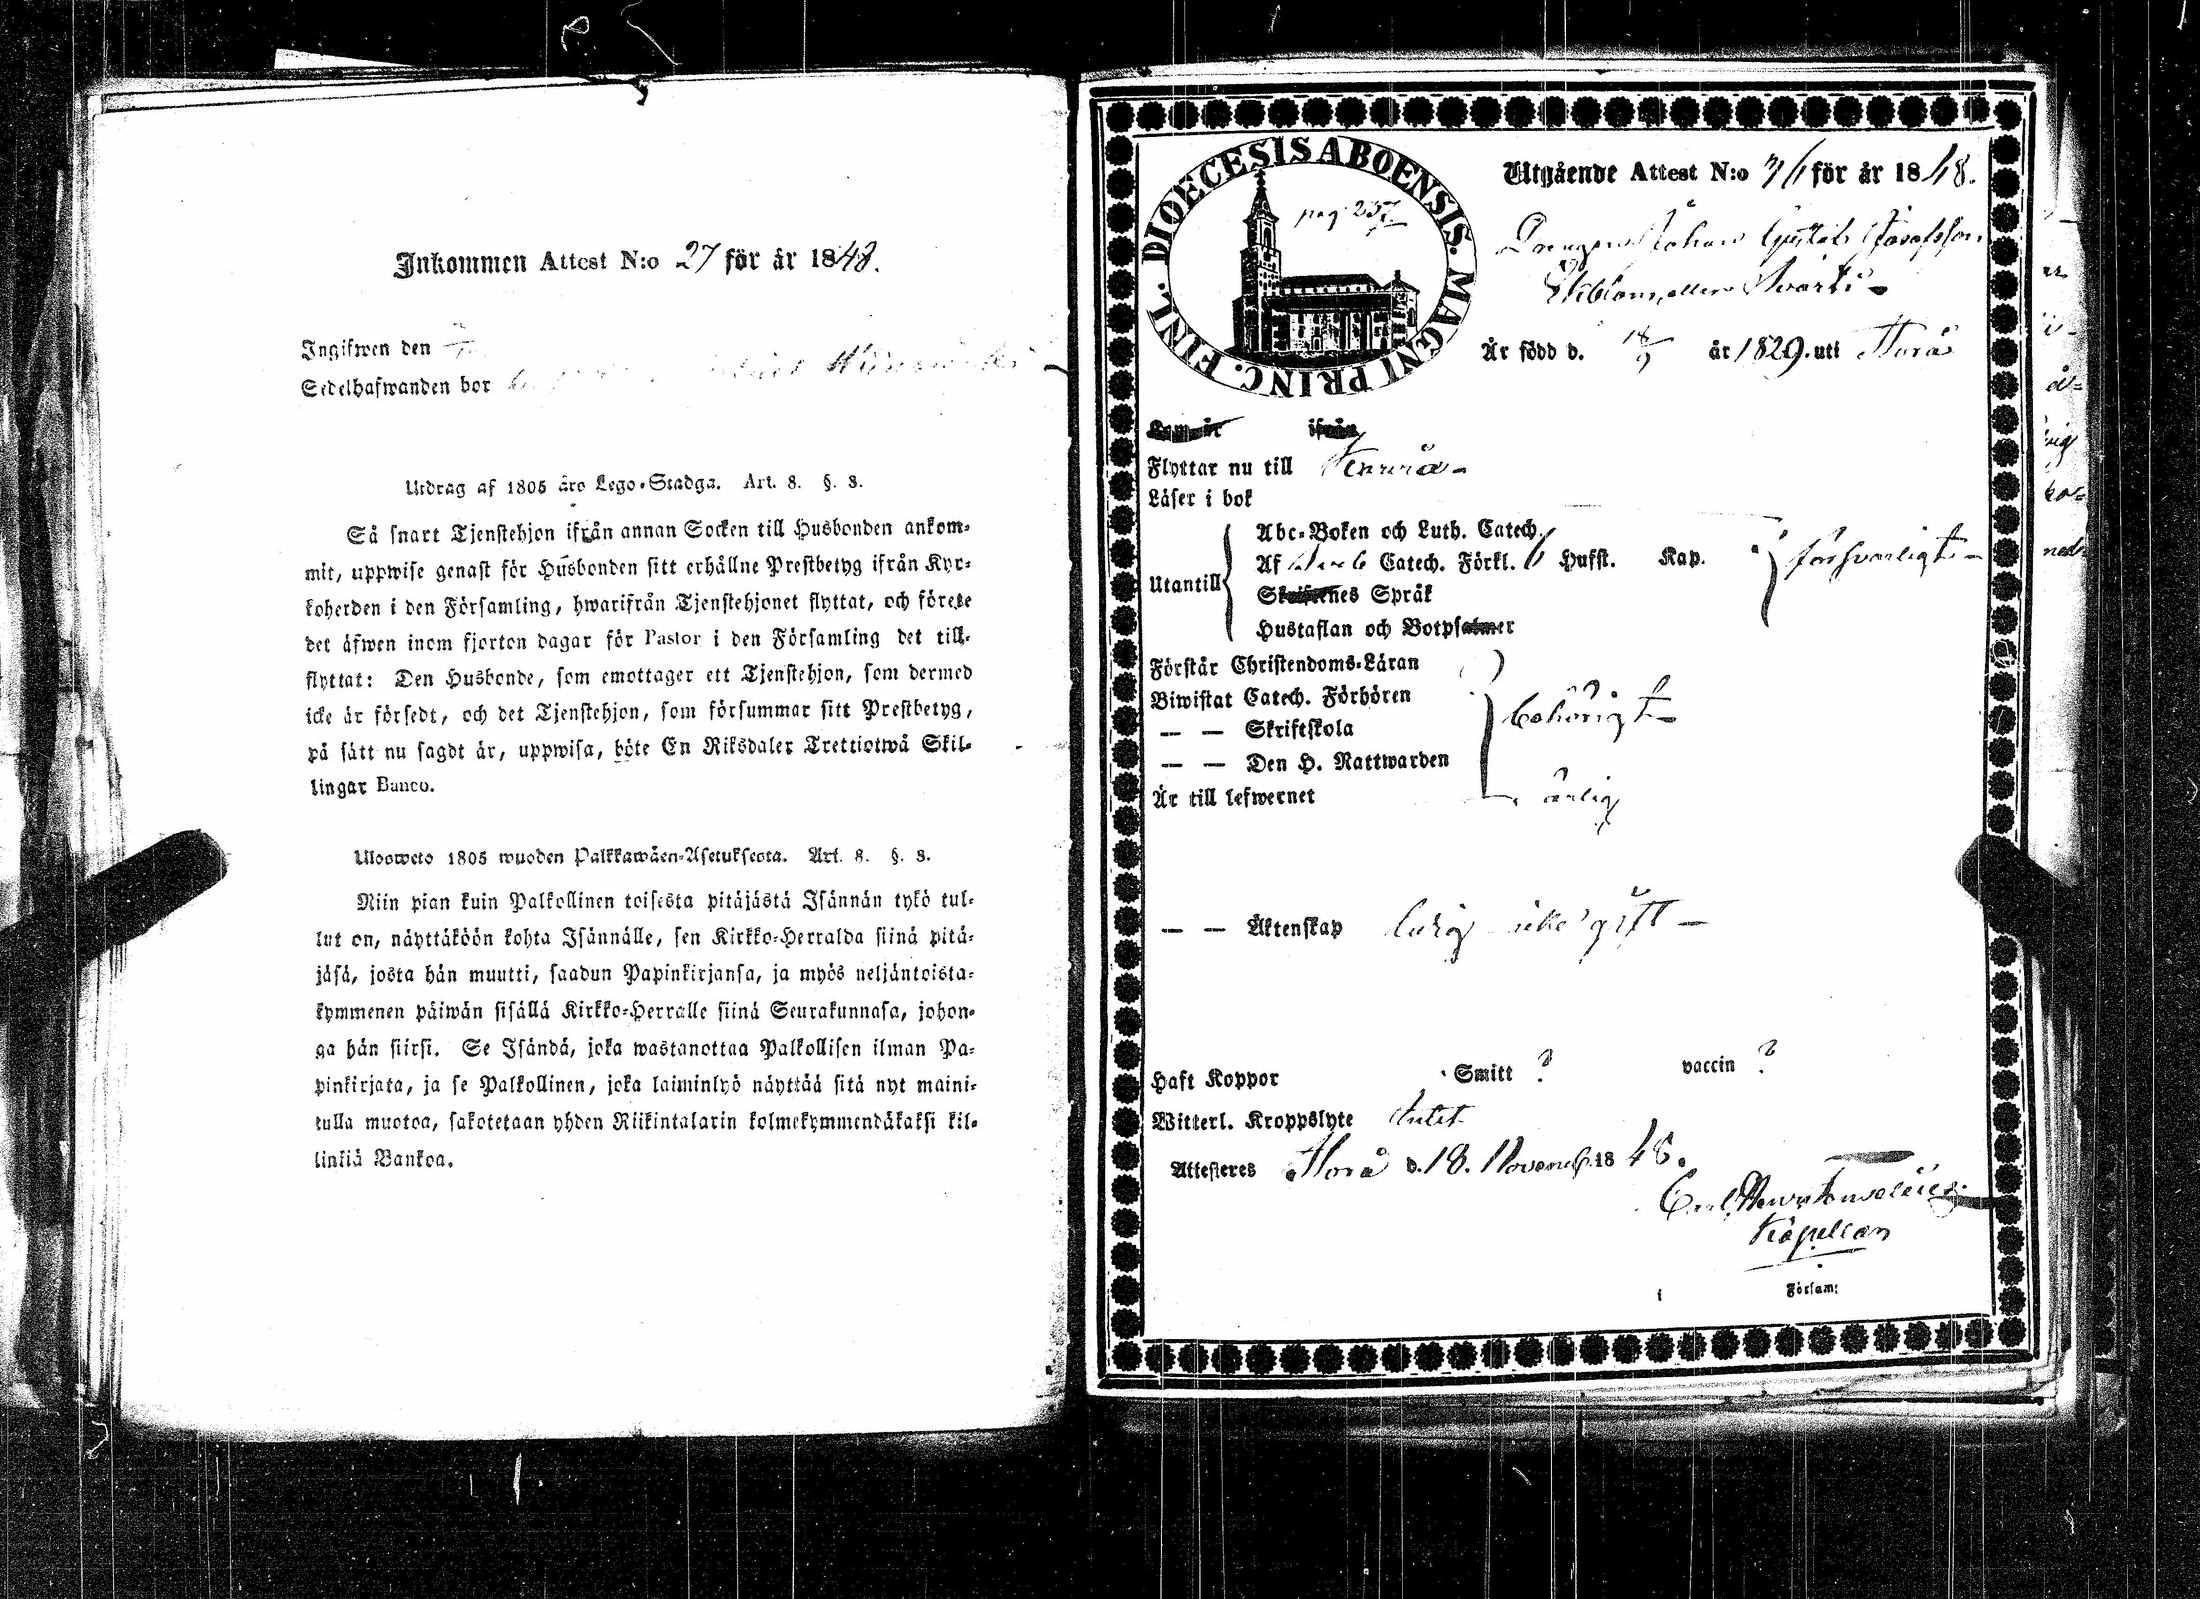 Inkommen Attest N:o 27 för år 1848.
Ingifwen den
Sedelhafwanden bor
Utdrag af 1805 års Lego-Stadga. Art. 8. §. 3.
Så snart Tjenstehjon ifrån annan Socken till Husbonden ankom-
mit, uppwise genast för Husbonden sitt erhållne Prestbetyg ifrån Kyr-
koherden i den Församling, hwarifrån Tjenstehjonet flyttat, och förete
det äfwen inom fjorton dagar för Pastor i den Församling det till-
flyttat: Den Husbonde, som emottager ett Tjenstehjon, som dermed
icke är försedt, och det Tjenstehjon, som försummar sitt Prestbetyg,
på sätt nu sagdt är, uppwisa, böte En Riksdaler Trettiotwå Skil-
lingar Banco.
Ulosweto 1805 wuoden Palkkawäen-Asetuksesta. Art. 8. §. 3.
Niin pian kuin Palkollinen toisesta pitäjästä Isännän tykö tul-
lut on, näyttäköön kohta Isännälle, sen Kirkko-Herralda siinä pitä-
jäsä, josta hän muutti, saadun Papinkirjansa, ja myös neljäntoista-
kymmenen päiwän sisällä Kirkko-Herralle siinä Seurakunnasa, johon-
ga hän siirsi. Se Isändä, joka wastanottaa Palkollisen ilman Pa-
pinkirjata, ja se Palkollinen, joka laiminlyö näyttää sitä nyt maini-
tulla muotoa, sakotetaan yhden Riikintalarin kolmekymmendäkaksi kil-
linkiä Bankoa.
DIOECESIS ABOENSIS. MAGNI PRINC. FINL.
pag. 237
Utgående Attest N:o 76 för år 1848.
Drengen Johan Gustaf Josefsson
Är född d. 18/9 år 1829. uti
Kom år ifrån
Flyttar nu till
Läser i bok
Utantill
Abc-Boken och Luth. Catech.
Af Catech. Förkl. Hufst. Kap. försvarligt
Skriftenes Språk
Hustaflan och Botpsalmer
Förstår Christendoms-Läran
Biwistat Catech. Förhören
— — Skriftskola behörigt
— — Den H. Nattwarden
Är till lefwernet ärlig
— — Äktenskap ledig icke gift
Haft Koppor Smitt ? vaccin ?
Witterl. Kroppslyte Intet
Attesteres d. 18. Novemb. 1848.
Carl
Kapellan
i Försam: